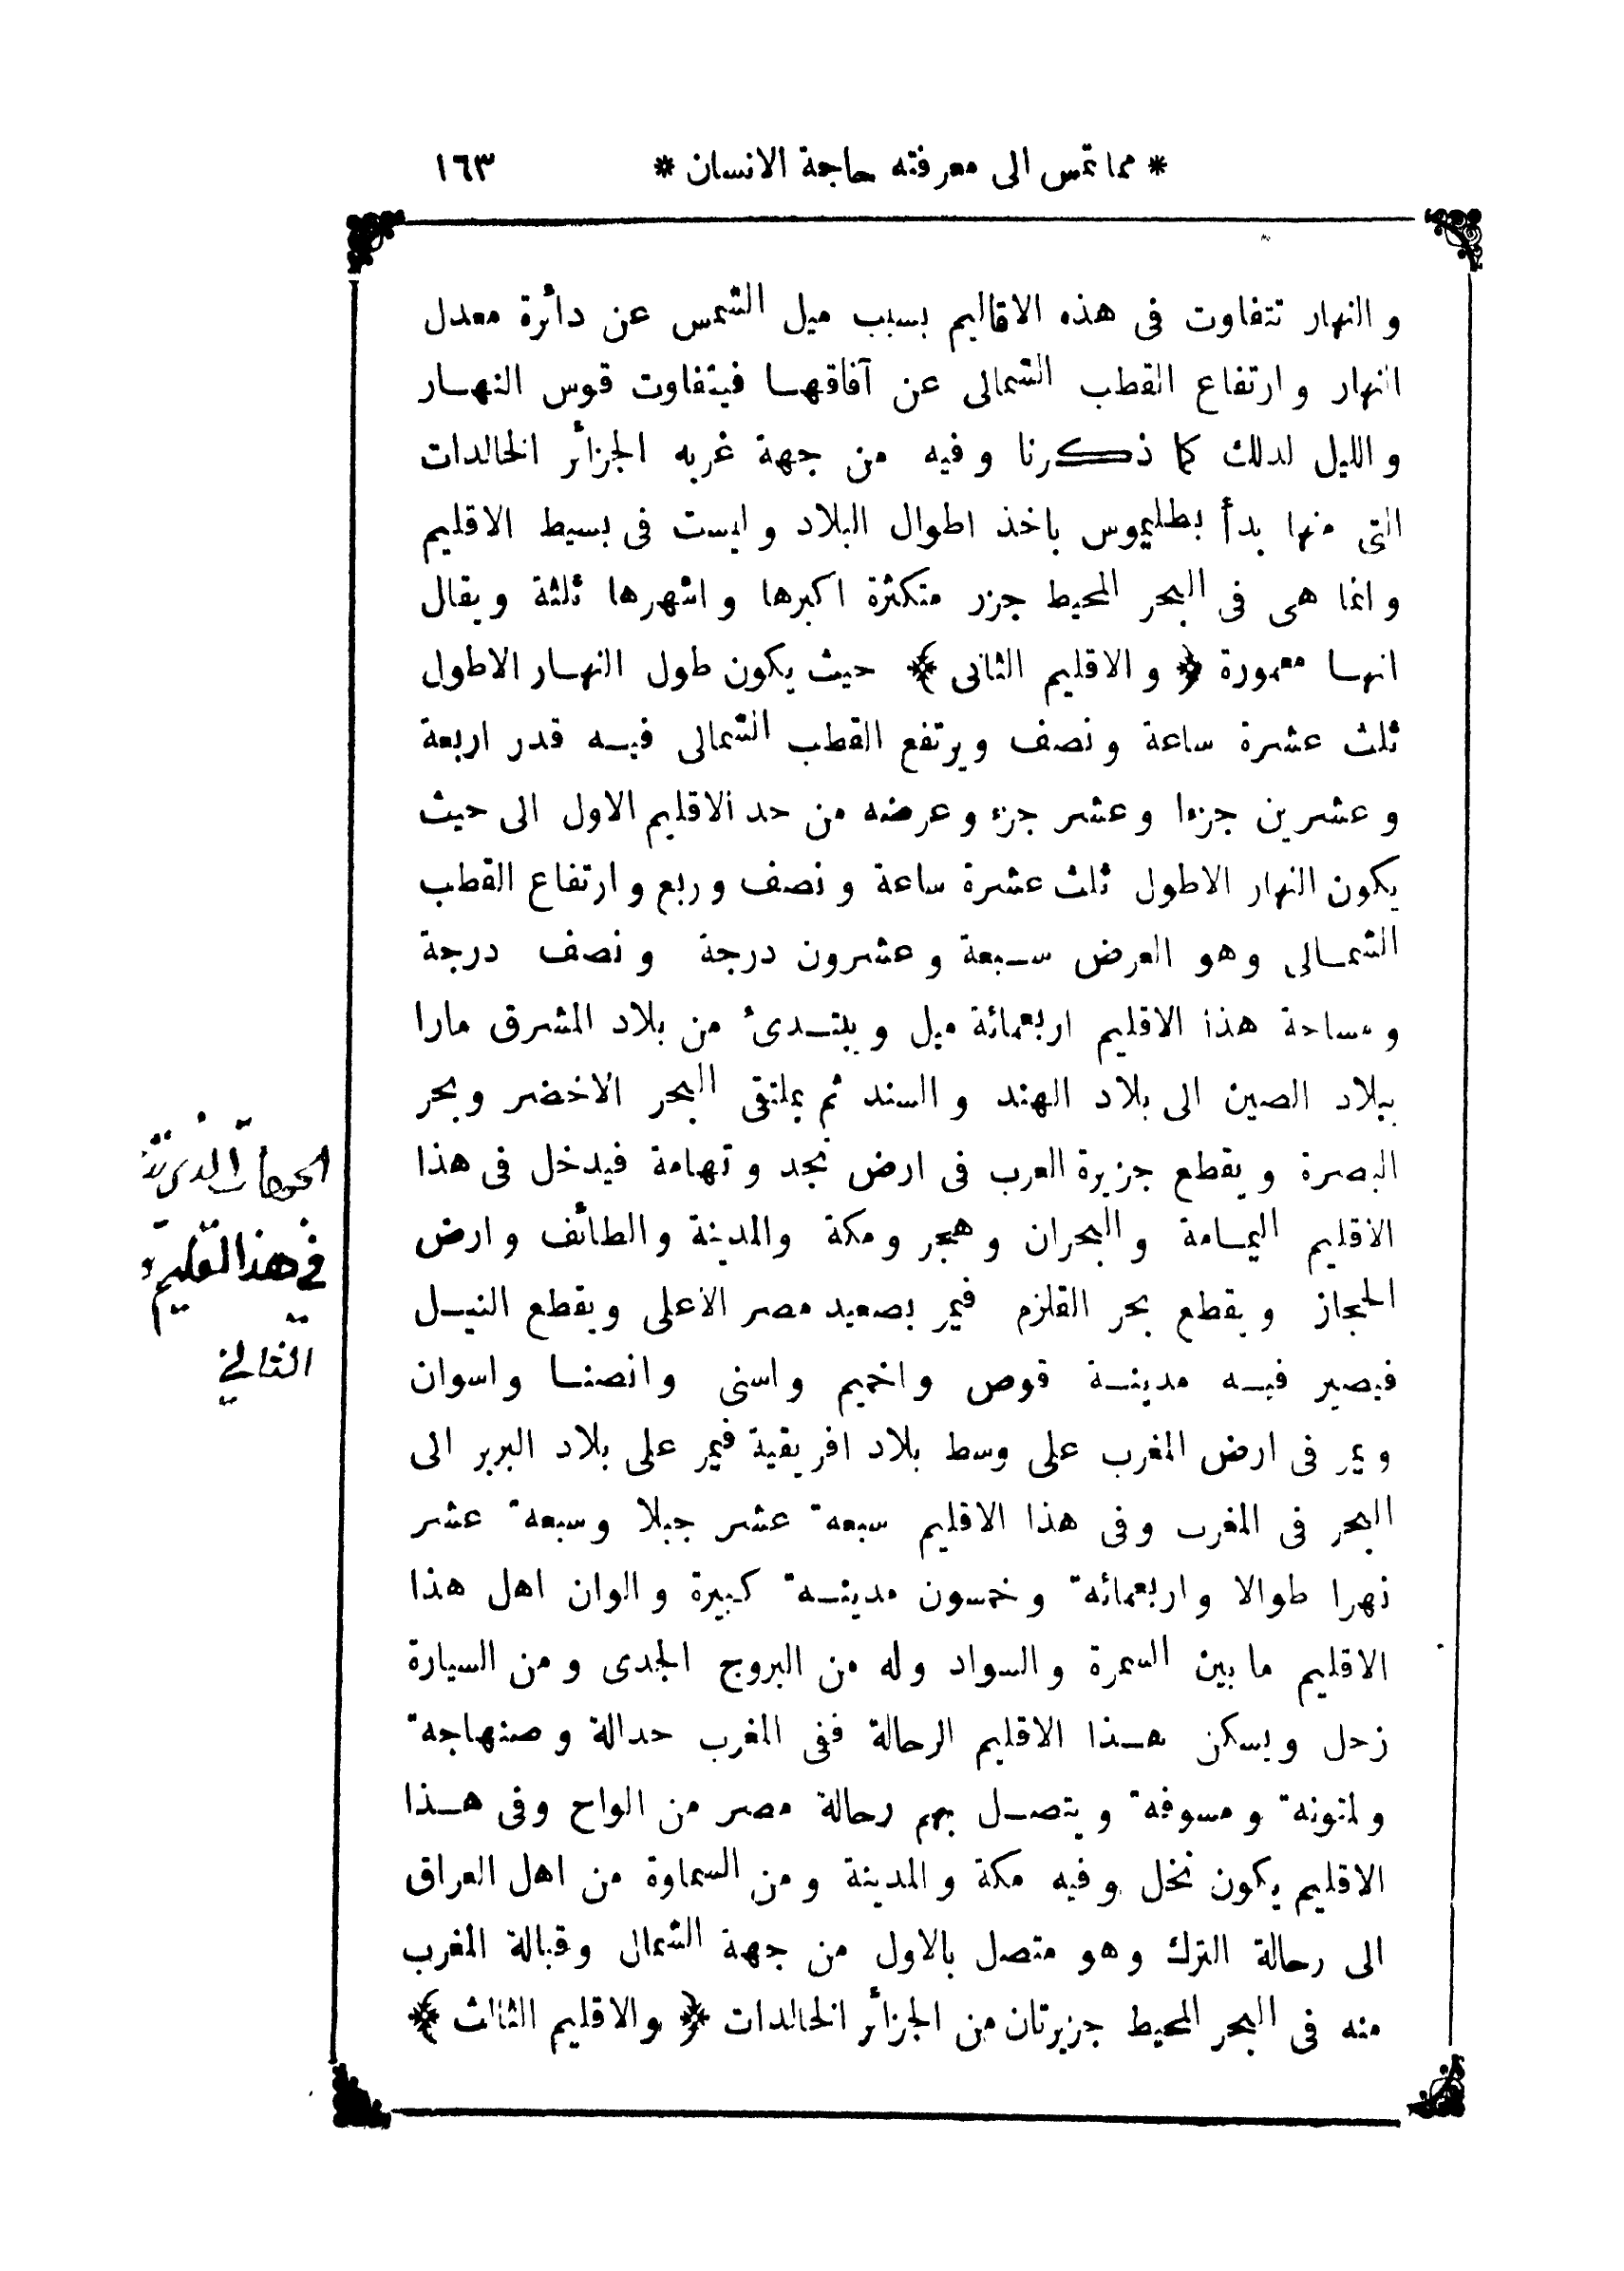 * مما تمس الى معرفته حاجة الانسان * ١٦٣
و النهار تتفاوت فى هذه الاقاليم بسبب ميل الشمس عن دائرة معدل
النهار و ارتفاع القطب الشمالى عن آفاقهـا فيتفاوت قوس النهـار
و الليل لدلك كما ذكرنا و فيه من جهة غربه الجزائر الخالدات
التى منها بدأ بطليموس باخذ اطوال البلاد و ليست فى بسيط الاقليم
و انما هى فى البحر المحيط جزر متكثرة اكبرها و اشهرها ثلثة و يقال
انهـا معمورة ﴿ و الاقليم الثانى ﴾ حيث يكون طول النهـار الاطول
ثلث عشرة ساعة و نصف و يرتفع القطب الشمالى فيـه قدر اربعة
و عشرين جزءا و عشر جزء و عرضه من حد الاقليم الاول الى حيث
يكون النهار الاطول ثلث عشرة ساعة و نصف و ربع و ارتفاع القطب
الشمـالى وهو العرض سـبعة و عشرون درجة و نصف درجة
و مساحة هذا الاقليم اربعمائة ميل و يبتـدئ من بلاد المشرق مارا
ببلاد الصين الى بلاد الهند و السند ثم بملتقى البحر الاخضر و بحر
البصرة و يقطع جزيرة العرب فى ارض نجد و تهامة فيدخل فى هذا
الاقليم اليمـامة و البحران و هجر و مكة والمدينة و الطائف و ارض
الحجاز و يقطع بحر القلزم فيمر بصعيد مصر الاعلى و يقطع النيـل
فيصير فيـه مدينـة قوص و اخميم و اسنى و انصنـا و اسوان
و يمر فى ارض المغرب على وسط بلاد افريقية فيمر على بلاد البربر الى
البحر فى المغرب وفى هذا الاقليم سبعة عشر جبلا و سبعة عشر
نهرا طوالا و اربعمائة و خمسون مدينـة كبيرة و الوان اهل هذا
الاقليم ما بين السمرة و السواد وله من البروج الجدى و من السيارة
زحل و يسكن هـذا الاقليم الرحالة ففى المغرب حدالة و صنهاجة
و لمتونة و مسوفة و يتصـل بهم رحالة مصر من الواح وفى هـذا
الاقليم يكون نخل و فيه مكة و المدينة و من السماوة من اهل العراق
الى رحالة الترك و هو متصل بالاول من جهة الشمال و قبالة المغرب
منه فى البحر المحيط جزيرتان من الجزائر الخالدات ﴿ و الاقليم الثالث ﴾
فى هذا القليم
الثانى